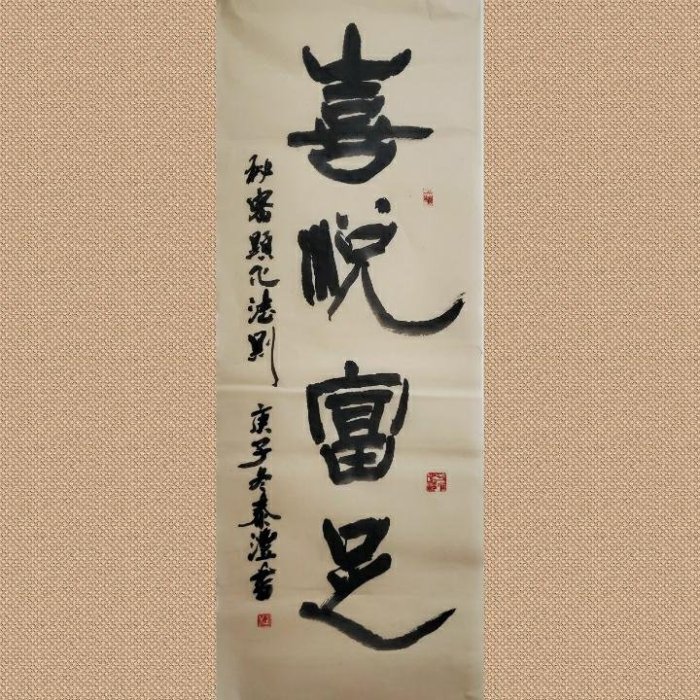 喜悦富足
秘密顯化法則
庚子冬泰澄書